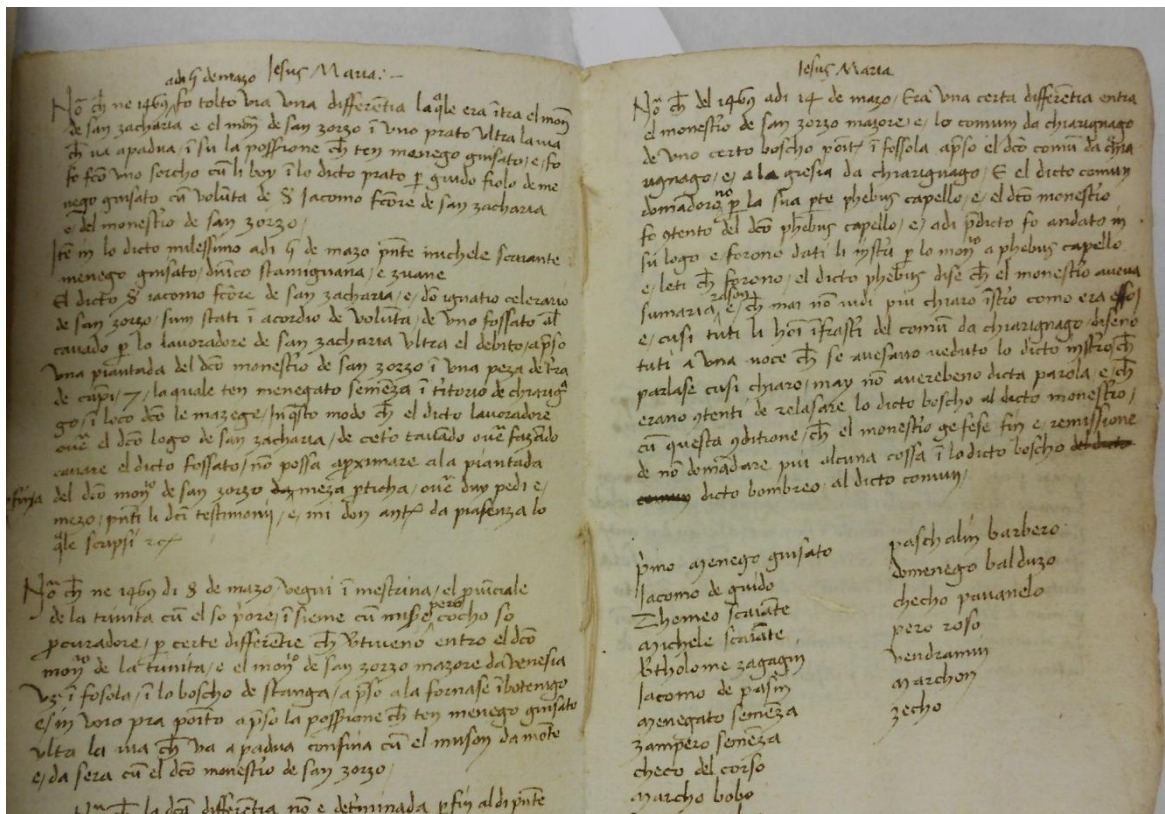 Jesus Maria
adi 5 de mazo
Nõ ch̄ ne 1469 fo tolto via una differẽtia la q̃le era ĩtra el moñ
de san zacharia e el moñ de san zorzo ĩ uno prato ultra la via
ch̄ va a padua / ĩ su la possione ch̄ ten menego guisato / e / fo
fo fc̃o uno solcho cũ li boy ĩ lo dicto prato ꝑ guido fiolo de me
nego guisato cũ volũta de S̃ Iacomo fc̃ore de san zacharia
e del monestio de san zorzo /
Itẽ in lo dicto milessimo adi 5 de mazo p̃nte michele scauante
menego guisato / dñico stamignana / e zuane
El dicto S̃ iacomo fc̃ore de san zacharia / e / dõ ignatio celerario
de san zorzo / sum stati ĩ acordio de volũta / de uno fossato al
cavado ꝑ lo lavoradore de san zacharia ultra el debito / ap̃so
una piantada del dc̃o monestio de san zorzo ĩ una peza de t̃ra
de cãpi / 7 / la quale ten menegato semẽza ĩ t̃itorio de chirig̃
go / ĩ loco dc̃o le mazege / In q̃sto modo ch̄ el dicto lavoradore
ouẽ el dc̃o logo de san zacharia / de cet̃o cavãdo ouẽ fazãdo
cavare el dicto fossato / nõ possa aꝓximare ala piantada
del dc̃o moñ de san zorzo meza ꝑticha / ouẽ duy pedi e
mezo / p̃nti li dc̃i testimonij / e / mi don da piasenza lo
q̃le scripsi
Nõ ch̄ ne 1469 di 8 de mazo / vegni ĩ mestrina / el ꝓuĩciale
de la trinita cũ el so ꝑore / ĩsieme cũ miser pero cocho so
ꝓcuradore / ꝑ certe differẽtie ch̄ entro el dc̃o
moñ de la trinita / e el moñ de san zorzo mazore da venesia
vz ĩ fosola / ĩ lo boscho de stanga / ap̃so ala fornase ĩ botenigo
e / in uno pra ap̃so la possione ch̄ ten menego guisato
ultra la via ch̄ va a padua confina cũ el muson da mõte
e / da sera cũ el dc̃o monestio de san zorzo /
ch̄ la dc̃a differẽtia nõ e det̃minada ꝑfin al di p̃nte
Jesus Maria
Nõ ch̄ del 1469 adi 14 de mazo / Era una certa differẽtia entra
el monestio de san zorzo mazore e / lo comun da chirignago
de uno certo boscho ĩ fossola ap̃so el dc̃o comũ da chi
rignago / e / a la giesia da chirignago / E el dicto comun
domãdoro no ꝑ la sua ꝑte phebus capello / e / el dc̃o monestio
fo ɔtento del dc̃o phebus capello / e / adi p̃dicto fo andato in
su logo e / forono dati li ĩst̃i ꝑ lo moñ a phebus capello
e / leti ch̄ forono / el dicto phebus dise ch̄ el monestio aveva
sumaria rason / e / ch̄ mai nõ vidi piu chiaro ĩst̃o como era esso /
e / cusi tuti li homĩ ĩfrasti del comũ da chirignago / diseno
tuti a una voce ch̄ se avesano veduto lo dicto ĩst̃o / ch̄
parlase cusi chiaro / may nõ averebeno dicta parola / e / ch̄
erano ɔtenti de relasare lo dicto boscho al dicto monestio /
cũ questa ɔditione / ch̄ el monestio ge fese fin e remissione
de nõ domãdare piu alcuna cossa ĩ lo dicto boscho del dicto
comun dicto bombreo / al dicto comun /
p̃mo menego guisato
Iacomo de guido
Thomeo scauãte
Michele scauãte
Btholome zagagnin
Iacomo de pasin
Menegato semẽza
zampero semẽza
checo del corso
Marcho bobo
paschalin barbero
domenego balduzo
checho pavanelo
pero roso
vendramin
Marchon
zecho